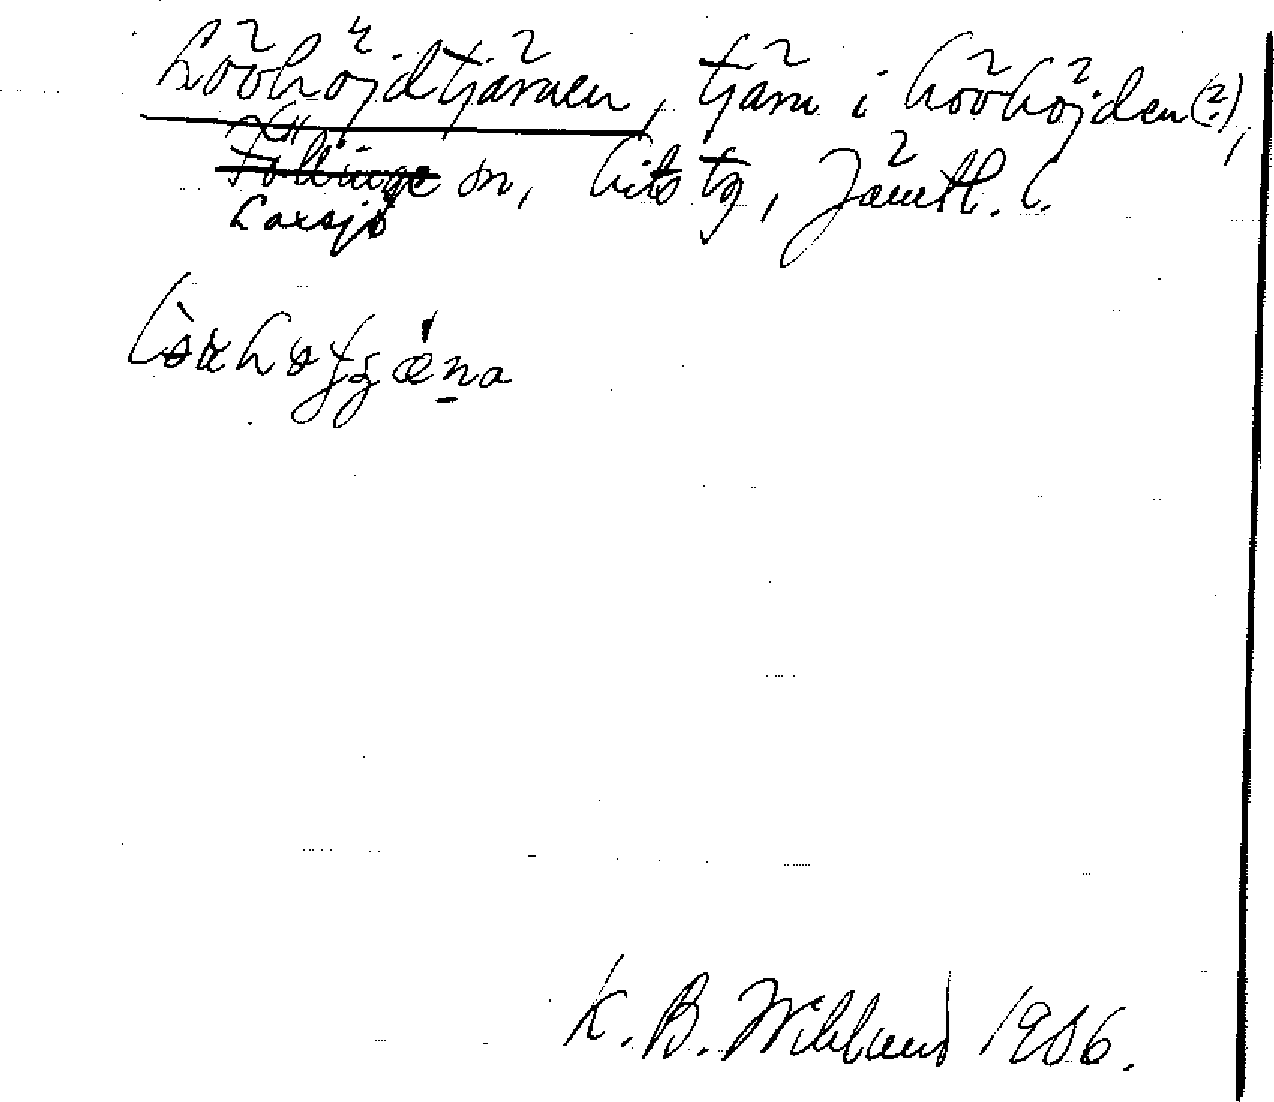 Lövhöjdtjärnen, tjärn i Lövhöjden (?),
Föllinge sn, Lits tg, Jämtl. l.
Laxsjö
K. B. Wiklund 1906.